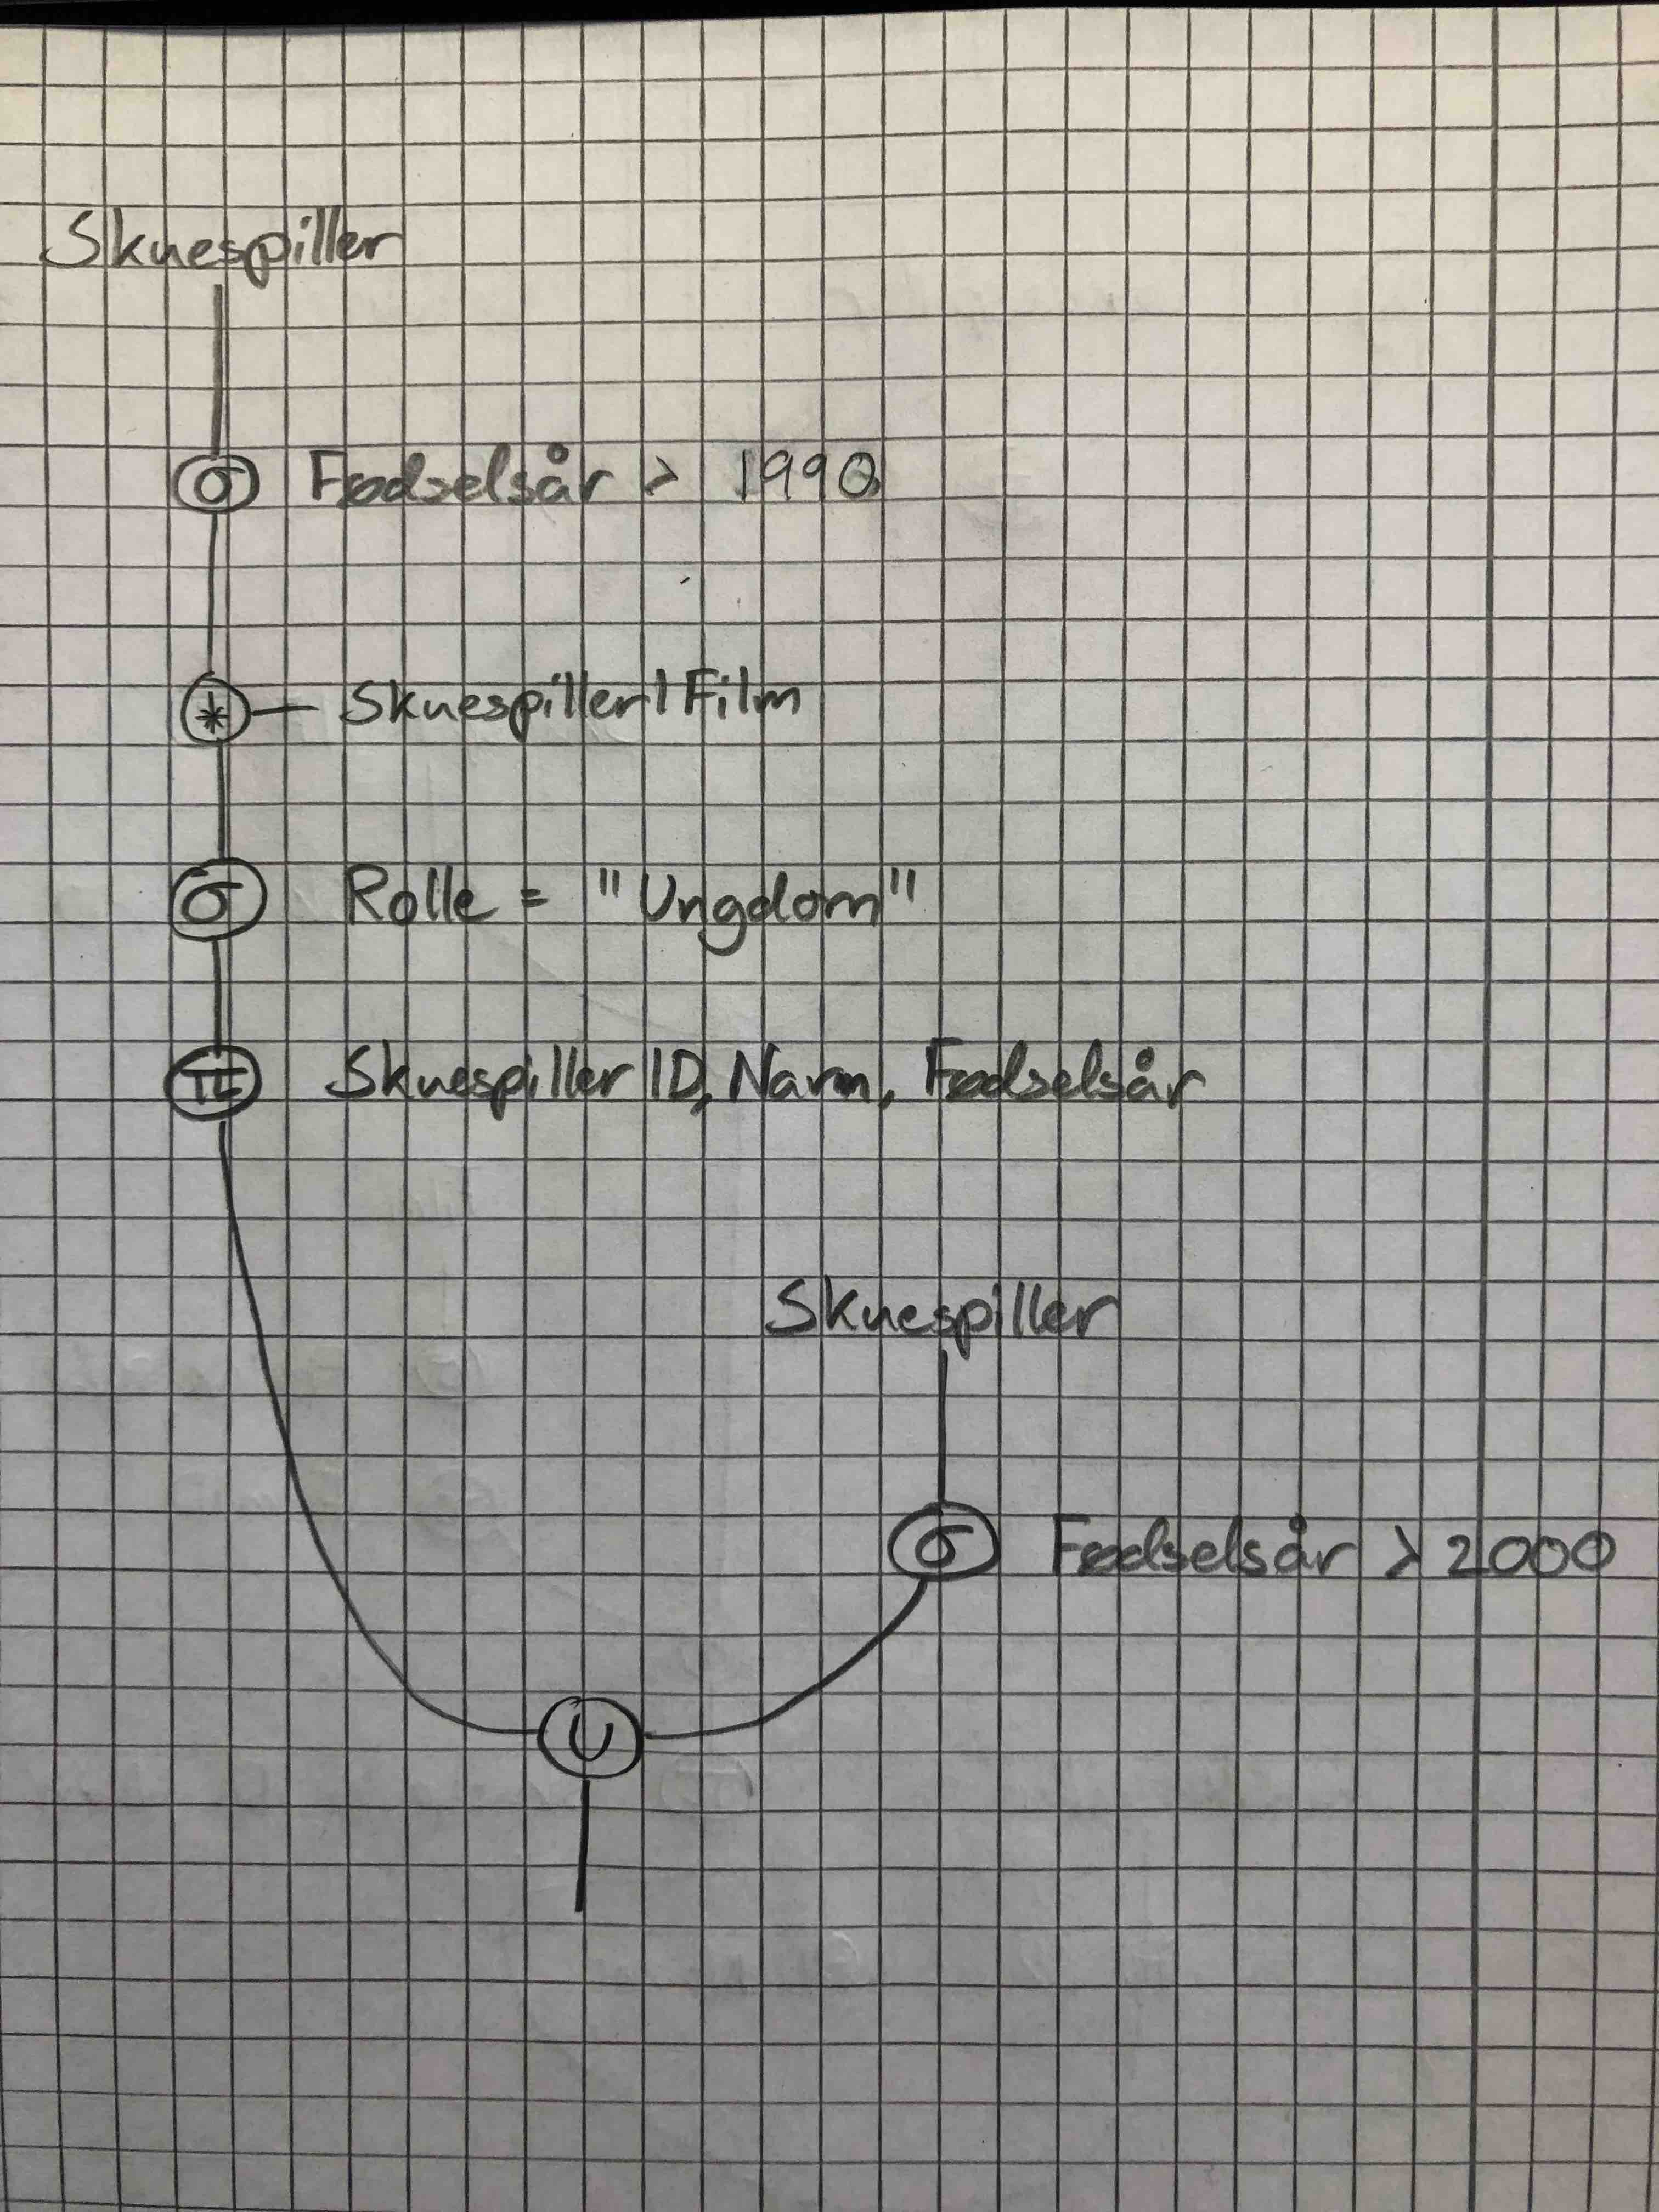 Skuespiller
σ Fødselsår > 1990
* SkuespillerIFilm
σ Rolle = "Ungdom"
π SkuespillerID, Navn, Fødselsår
Skuespiller
σ Fødselsår > 2000
U